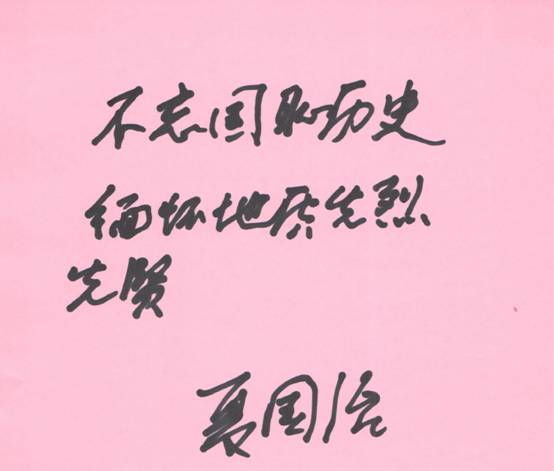 不忘国耻历史
缅怀地质先烈
先贤
夏国治